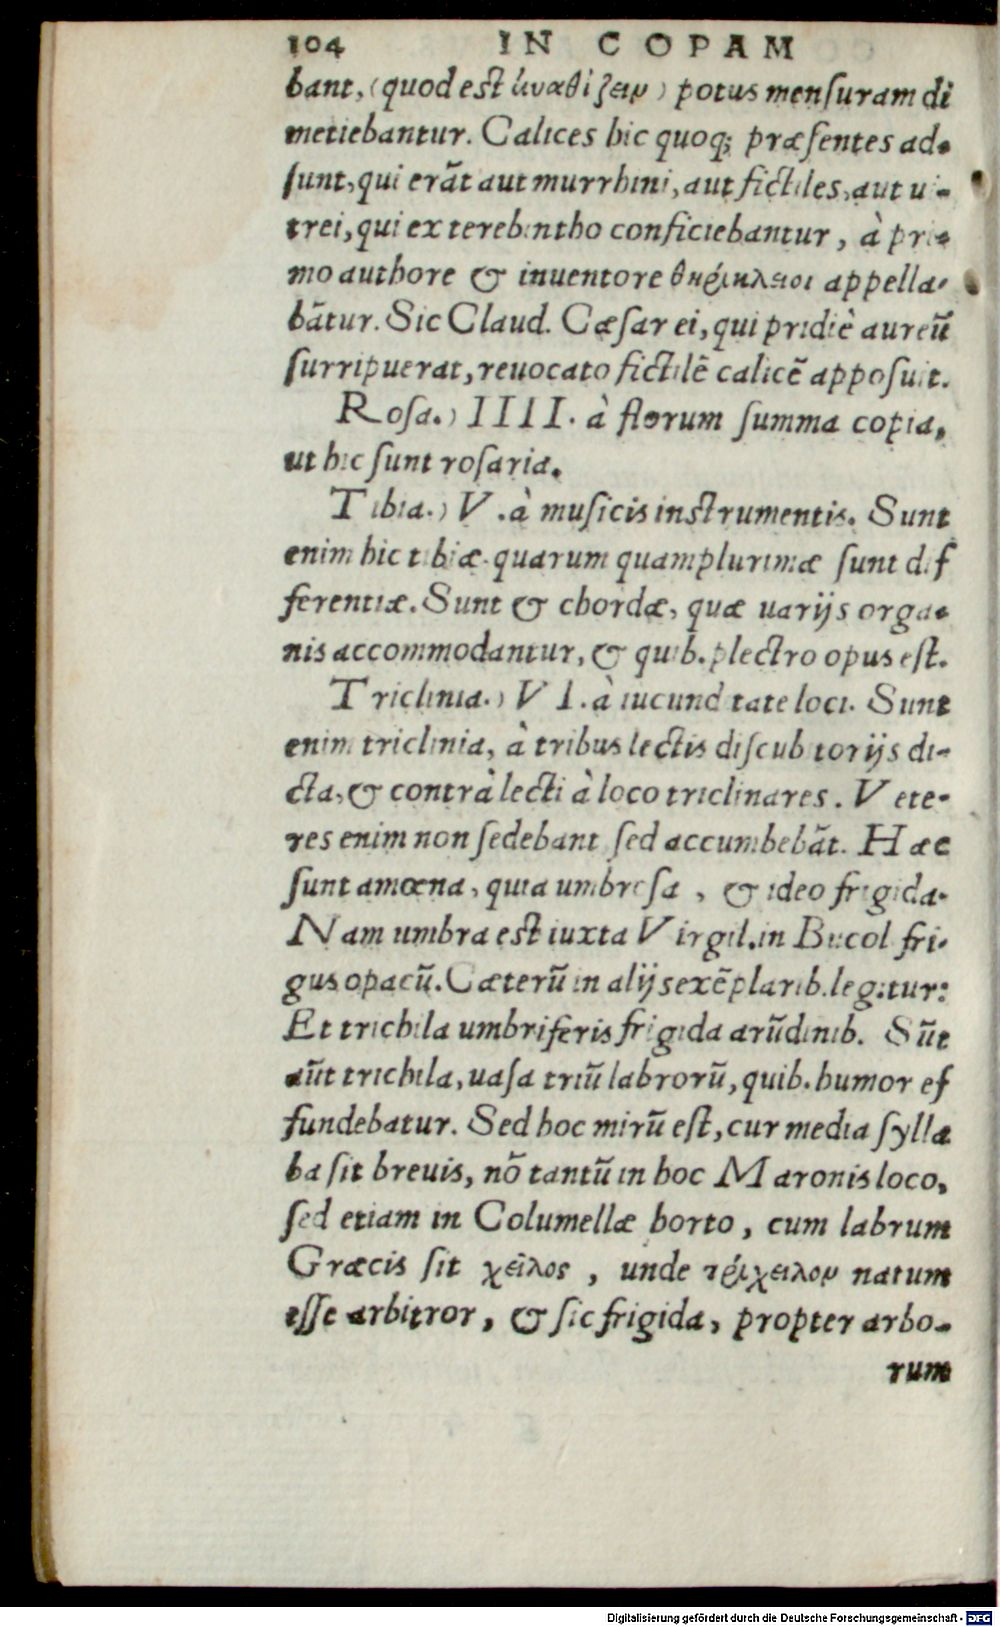 104 IN COPAM
bant, (quod est κυαθίζειν) potus mensuram di
metiebantur. Calices hic quoq; præsentes ad-
sunt, qui erāt aut murrhini, aut fictiles, aut ui-
trei, qui ex terebintho conficiebantur, à pri-
mo authore & inuentore θηρίκλειοι appella-
bātur. Sic Claud. Cæsar ei, qui pridiè aureū
surripuerat, reuocato fictilē calicē apposuit.
Rosa.) IIII. à florum summa copia,
ut hic sunt rosaria.
Tibia.) V. à musicis instrumentis. Sunt
enim hic tibiæ quarum quamplurimæ sunt dif
ferentiæ. Sunt & chordæ, quæ uarijs orga-
nis accommodantur, & quib. plectro opus est.
Triclinia.) VI. à iucunditate loci. Sunt
enim triclinia, à tribus lectis discubitorijs di-
cta, & contrà lecti à loco triclinares. Vete-
res enim non sedebant sed accumbebāt. Hæc
sunt amœna, quia umbrosa, & ideo frigida.
Nam umbra est iuxta Virgil. in Bucol fri-
gus opacū. Cæterū in alijs exēplarib. legitur:
Et trichila umbriferis frigida arūdinib. Sūt
aūt trichila, uasa triū labrorū, quib. humor ef
fundebatur. Sed hoc mirū est, cur media sylla
ba sit breuis, nō tantū in hoc Maronis loco,
sed etiam in Columellæ horto, cum labrum
Græcis sit χεῖλος, unde τρίχειλον natum
esse arbitror, & sic frigida, propter arbo-
rum
Digitalisierung gefördert durch die Deutsche Forschungsgemeinschaft - DFG